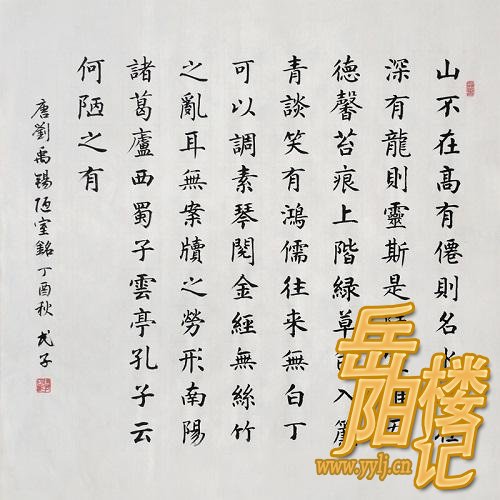 山不在高有僊則名水
深有龍則靈斯是
德馨苔痕上階綠草入簾
青談笑有鴻儒往來無白丁
可以調素琴閱金經無絲竹
之亂耳無案牘之勞形南陽
諸葛廬西蜀子雲亭孔子云
何陋之有
唐劉禹錫陋室銘丁酉秋
岳阳楼记
www.yylj.cn